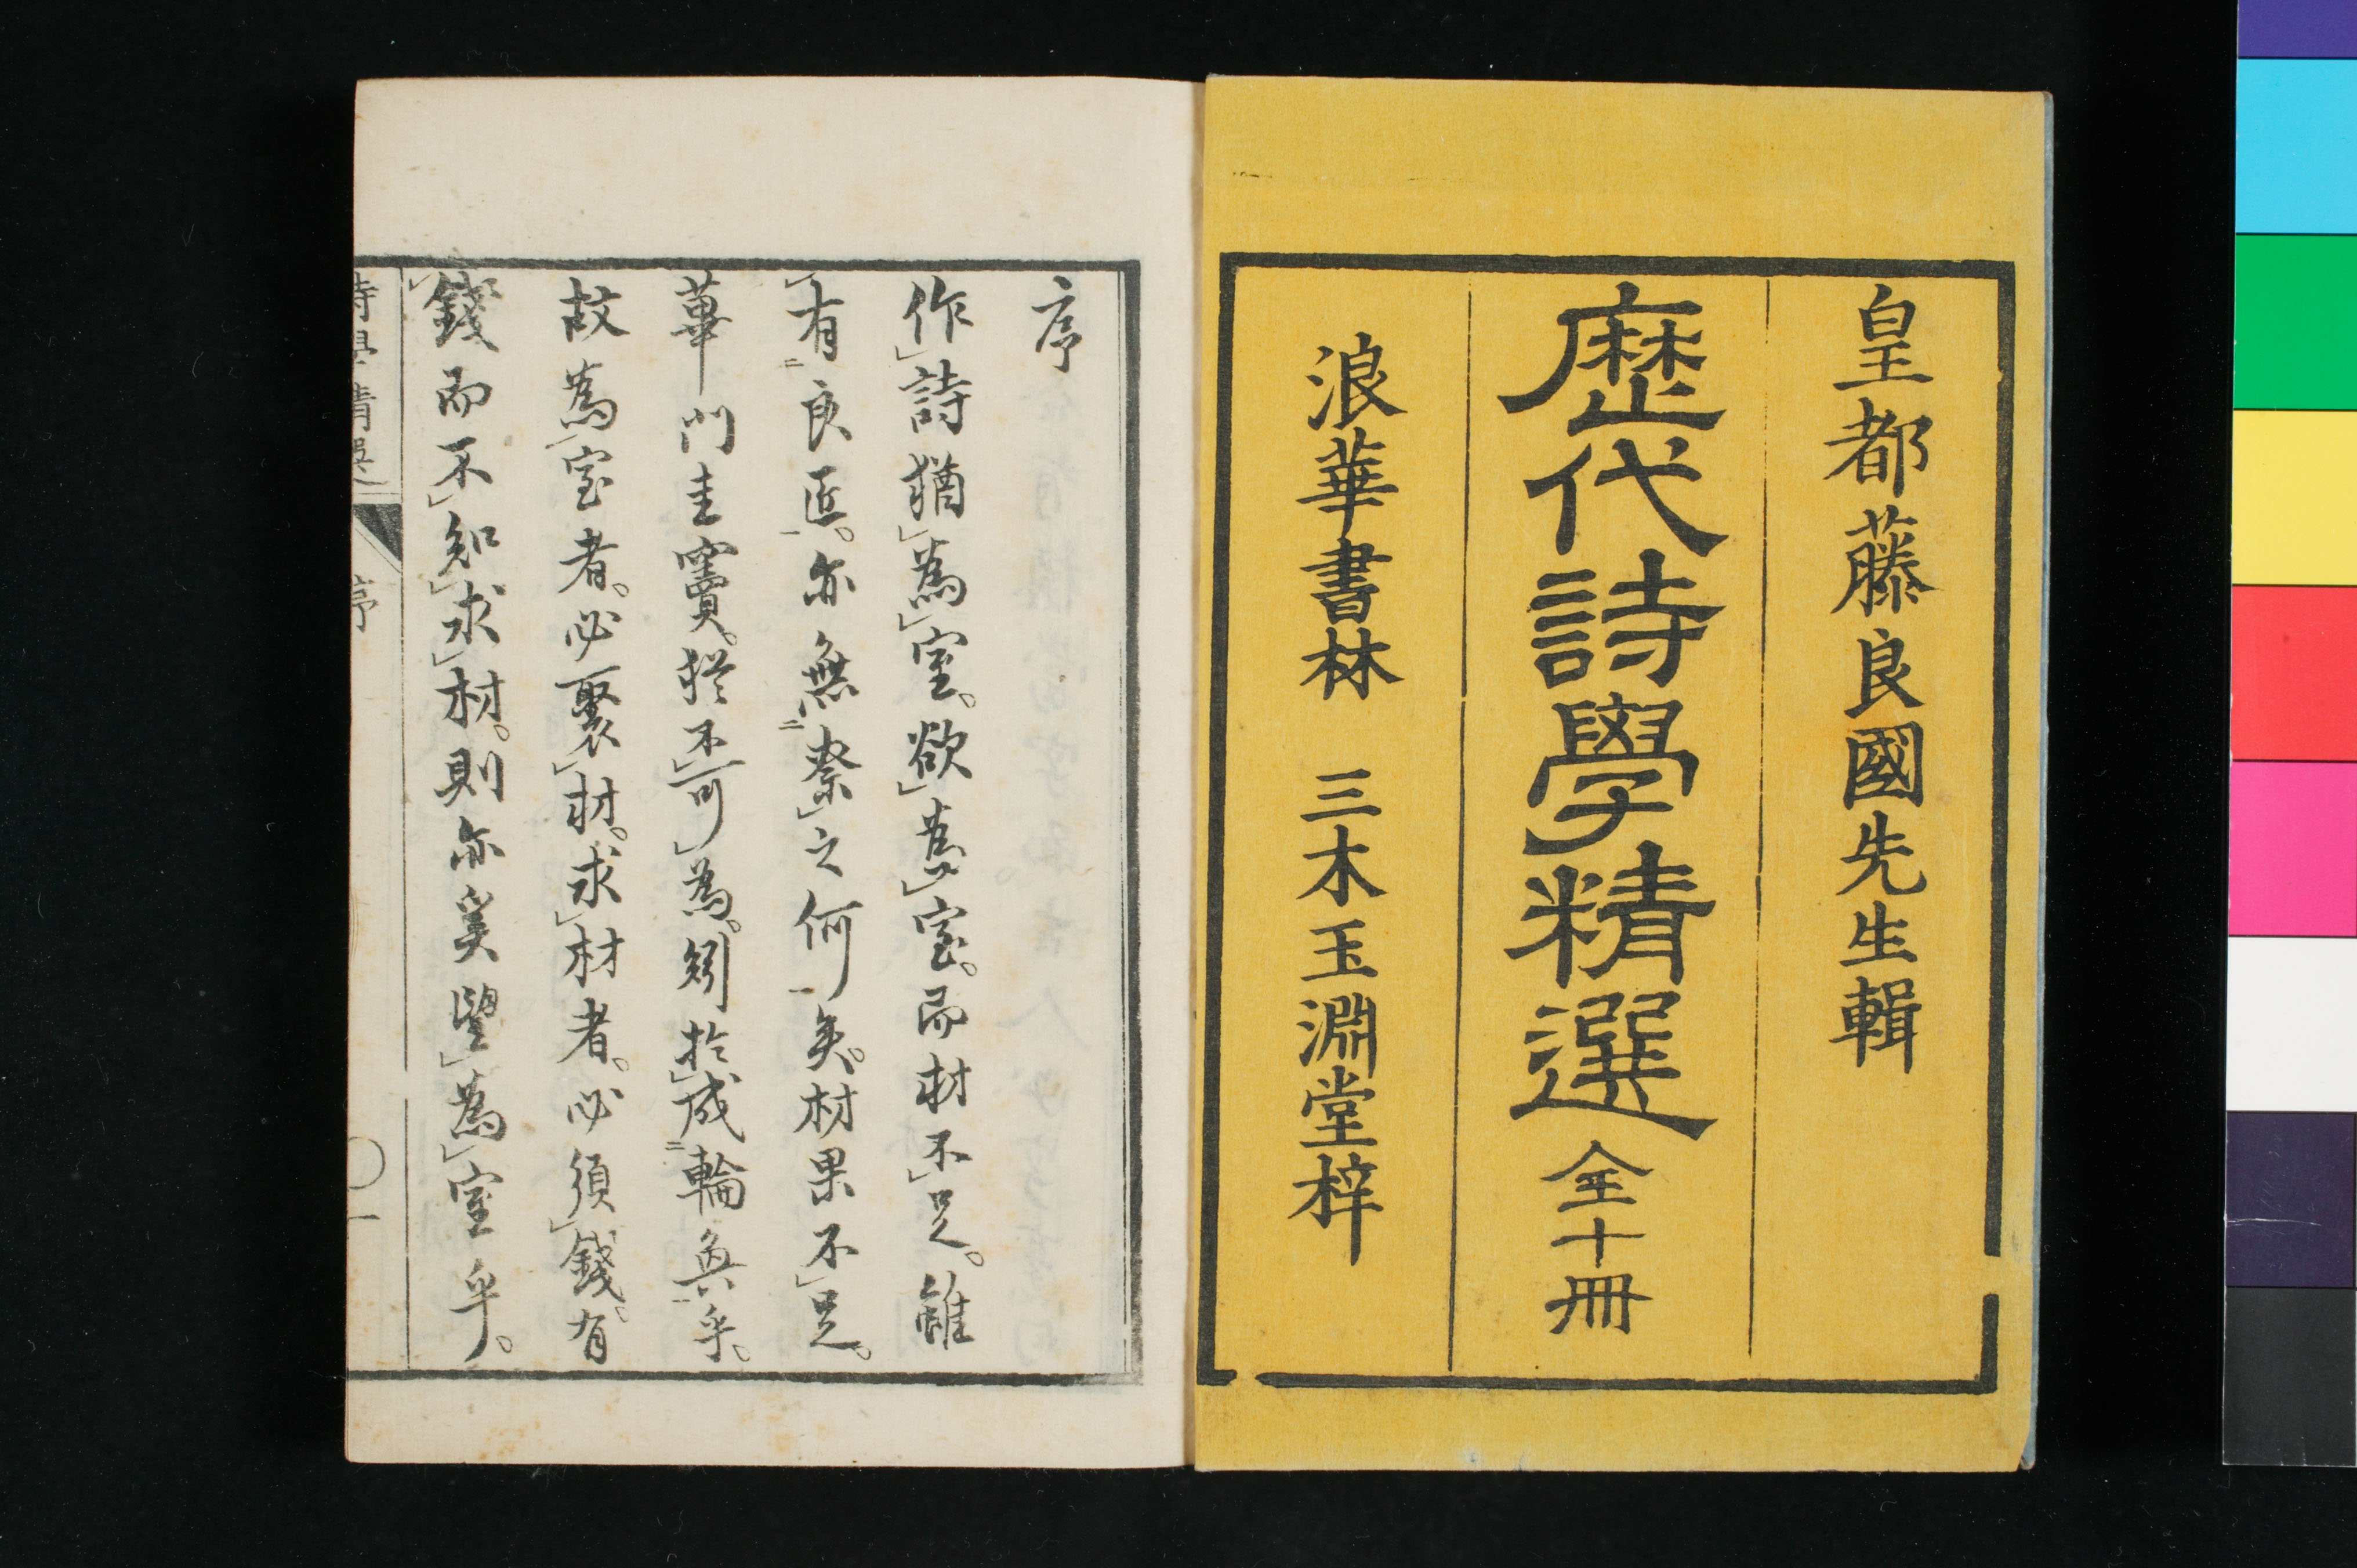 皇都藤良國先生輯
歴代詩學精選全十冊
浪華書林 三木玉淵堂梓
序
作詩猶為室。欲為室。而材不足。雖
有良匠。亦無柰之何矣。材果不足。
蓽門圭竇。猶不可為。矧於成輪奐乎。
故為室者。必聚材。求材者。必須錢。有
錢而不知求材。則亦奚望為室乎。
詩學精選 序 一